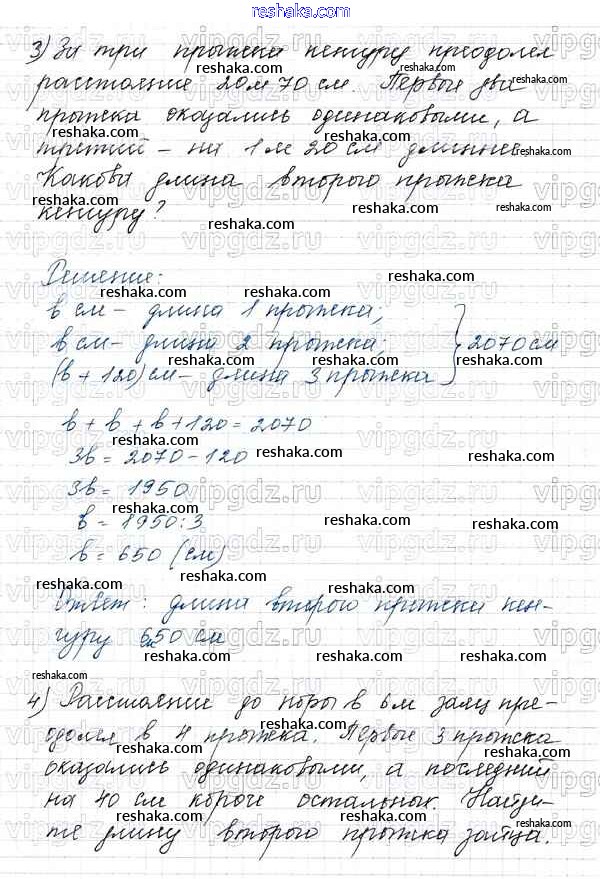 reshaka.com
3) За три прыжка кенгуру преодолел
расстояние 20 м 70 см. Первые два
прыжка оказались одинаковыми, а
третий – на 1 м 20 см длиннее.
Какова длина второго прыжка
кенгуру?
Решение:
b см – длина 1 прыжка;
b см – длина 2 прыжка;
(b + 120) см – длина 3 прыжка } 2070 см
b + b + b + 120 = 2070
3b = 2070 - 120
3b = 1950
b = 1950 : 3
b = 650 (см)
Ответ: длина второго прыжка кен-
гуру 6м50 см
4) Расстояние до норы в 6 м заяц пре-
одолел в 4 прыжка. Первые 3 прыжка
оказались одинаковыми, а последний
на 40 см короче остальных. Найди-
те длину второго прыжка зайца.